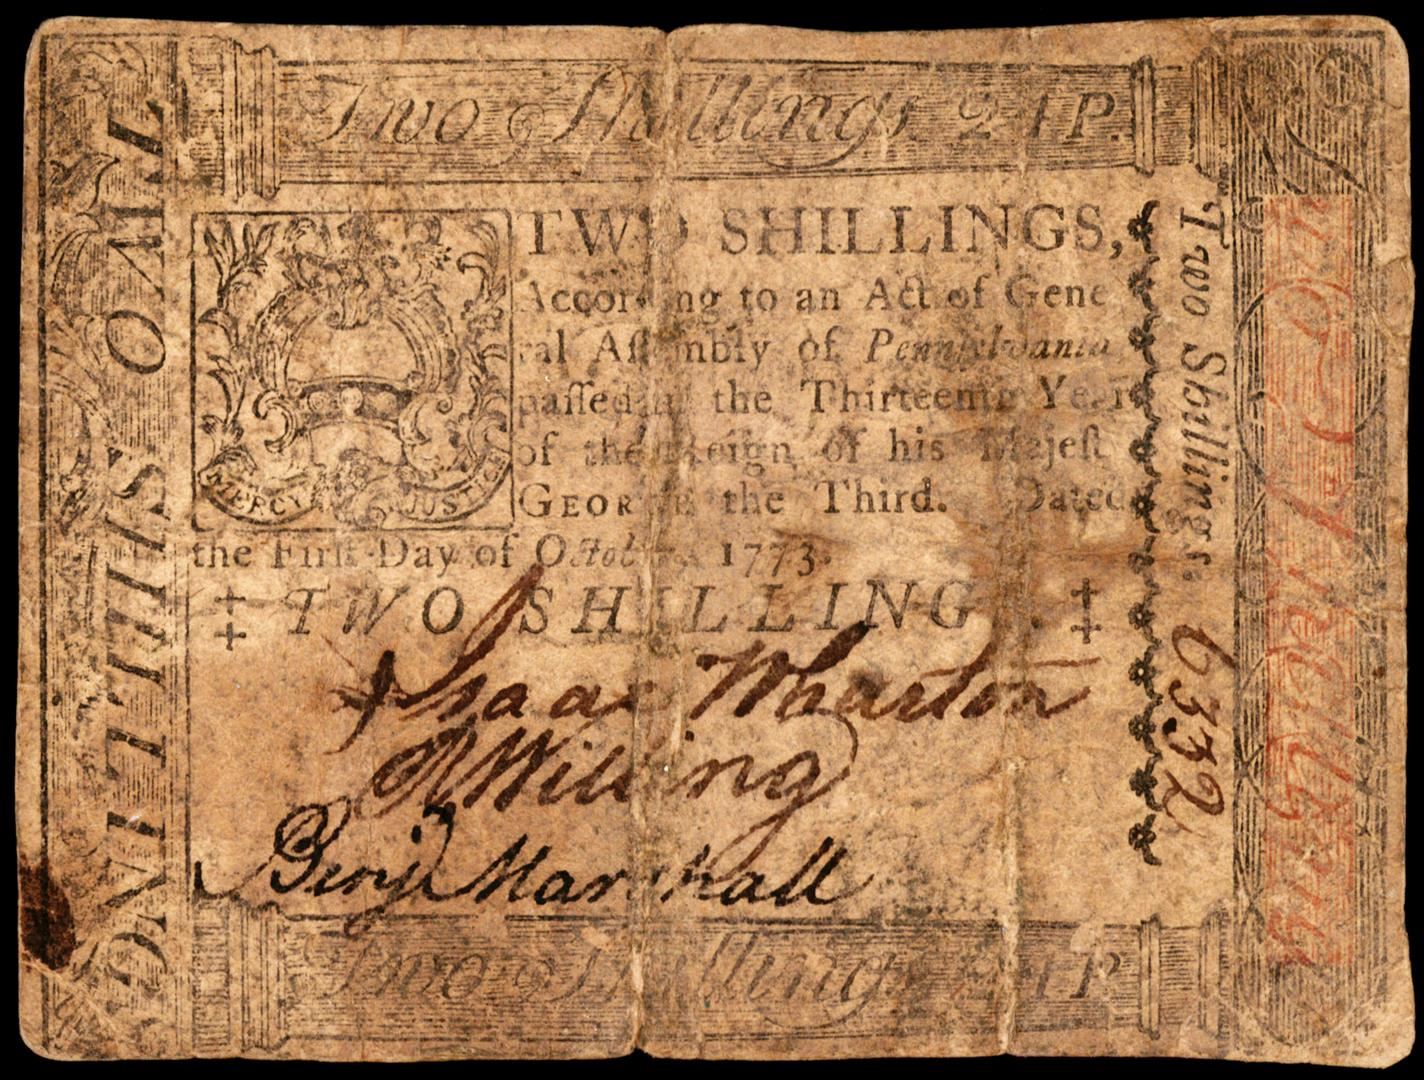 Two Shillings 24P.
TWO SHILLINGS,
According to an Act of Gene
ral Aſſembly of Pennſylvania
paſſed in the Thirteenth Year
of the Reign of his Majeſt
GEORGE the Third. Dated
the Firſt Day of October, 1773.
MERCY JUSTICE
‡ TWO SHILLING . ‡
Isaac Wharton
Willing
Benj Marshall
Two Shillings 24P
TWO SHILLING
Two Shillings.
6332